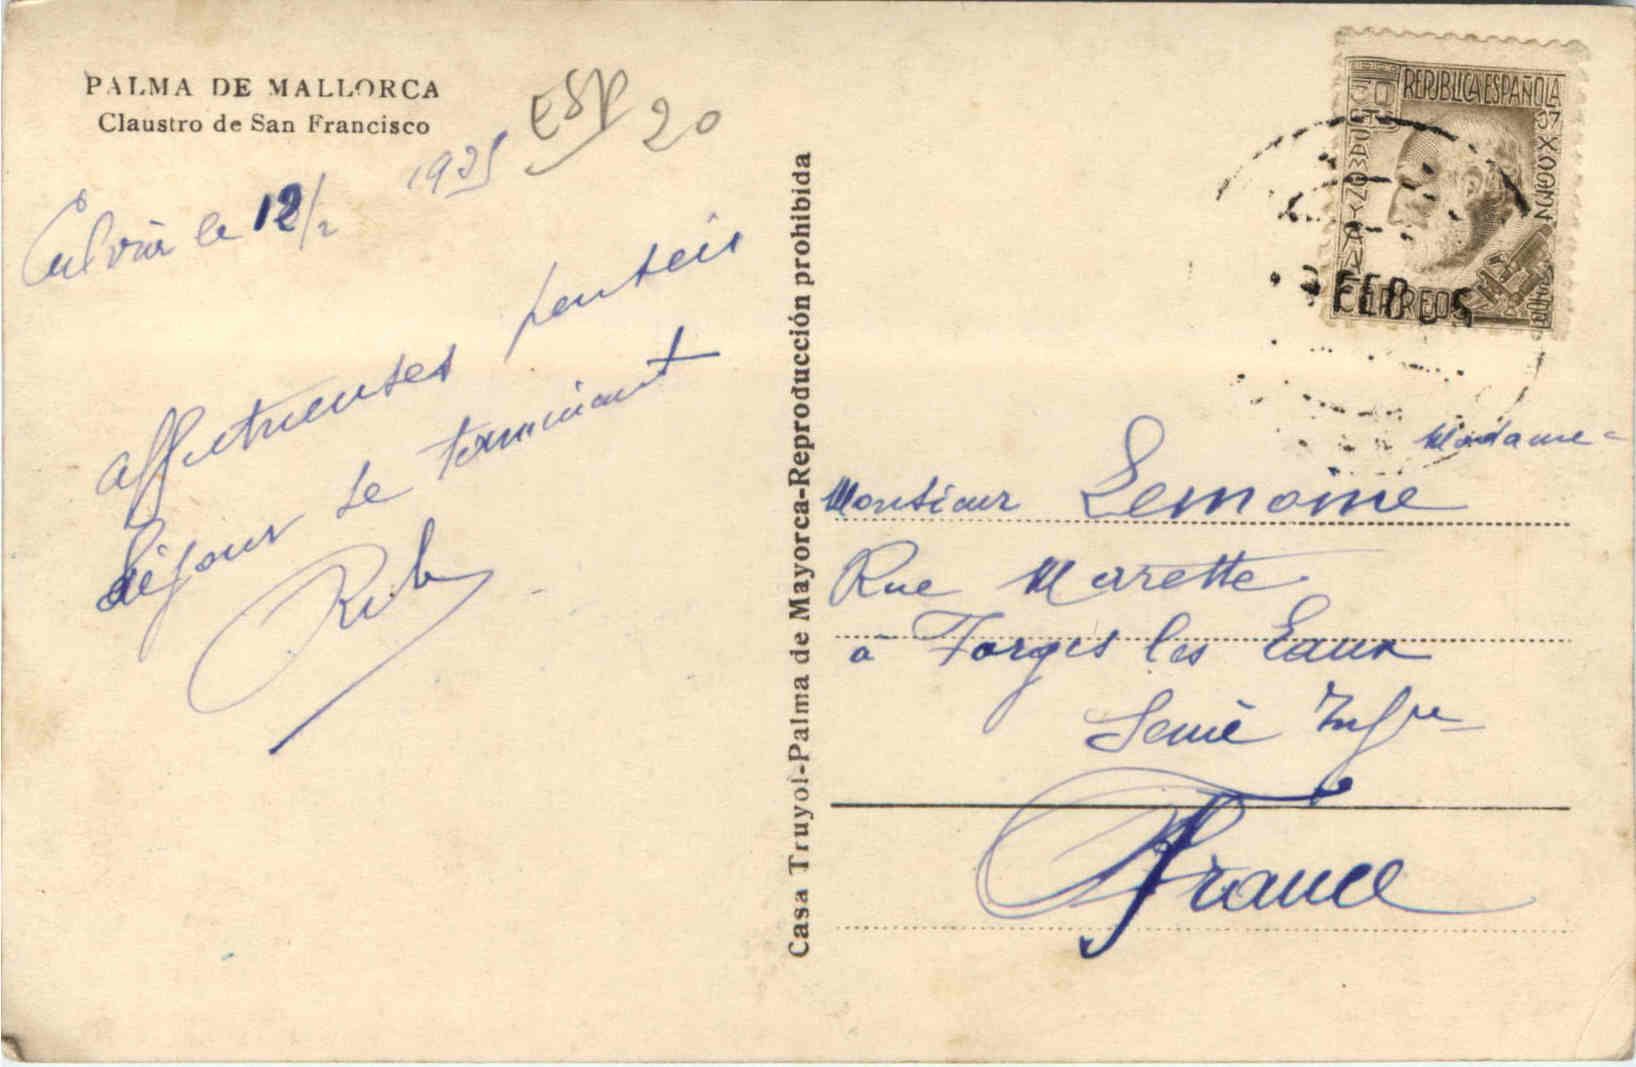 PALMA DE MALLORCA
Claustro de San Francisco
ESP 20
le 12/2 1935
affectueuses pensées
séjour se terminant
Casa Truyol-Palma de Mayorca-Reproducción prohibida
REPUBLICA ESPAÑOLA
CORREOS
FEB
Madame
Monsieur Lemoine
Rue Marette
à Forges les Eaux
Seine Infre
France